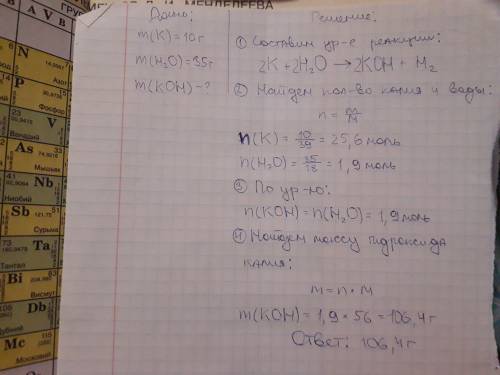 МЕНДЕЛЕЕВА
ГРУ
A V B
N
Азот
P
Фосфор
V
Ванадий
As
Мышьяк
Nb
Ниобий
Sb
Сурьма
Ta
Тантал
Bi
Висмут
Db
Дубний
Mc
Московий
Дано:
m(K) = 10г
m(H₂O) = 35г
m(KOH) - ?
Решение:
① Составим ур-е реакции:
2K + 2H₂O → 2KOH + H₂
② Найдем кол-во калия и воды:
n = m/M
n(K) = 10/39 = 25,6 моль
n(H₂O) = 35/18 = 1,9 моль
③ По ур-ю:
n(KOH) = n(H₂O) = 1,9 моль
④ Найдем массу гидроксида
калия:
m = n · M
m(KOH) = 1,9 * 56 = 106,4 г
Ответ: 106,4 г